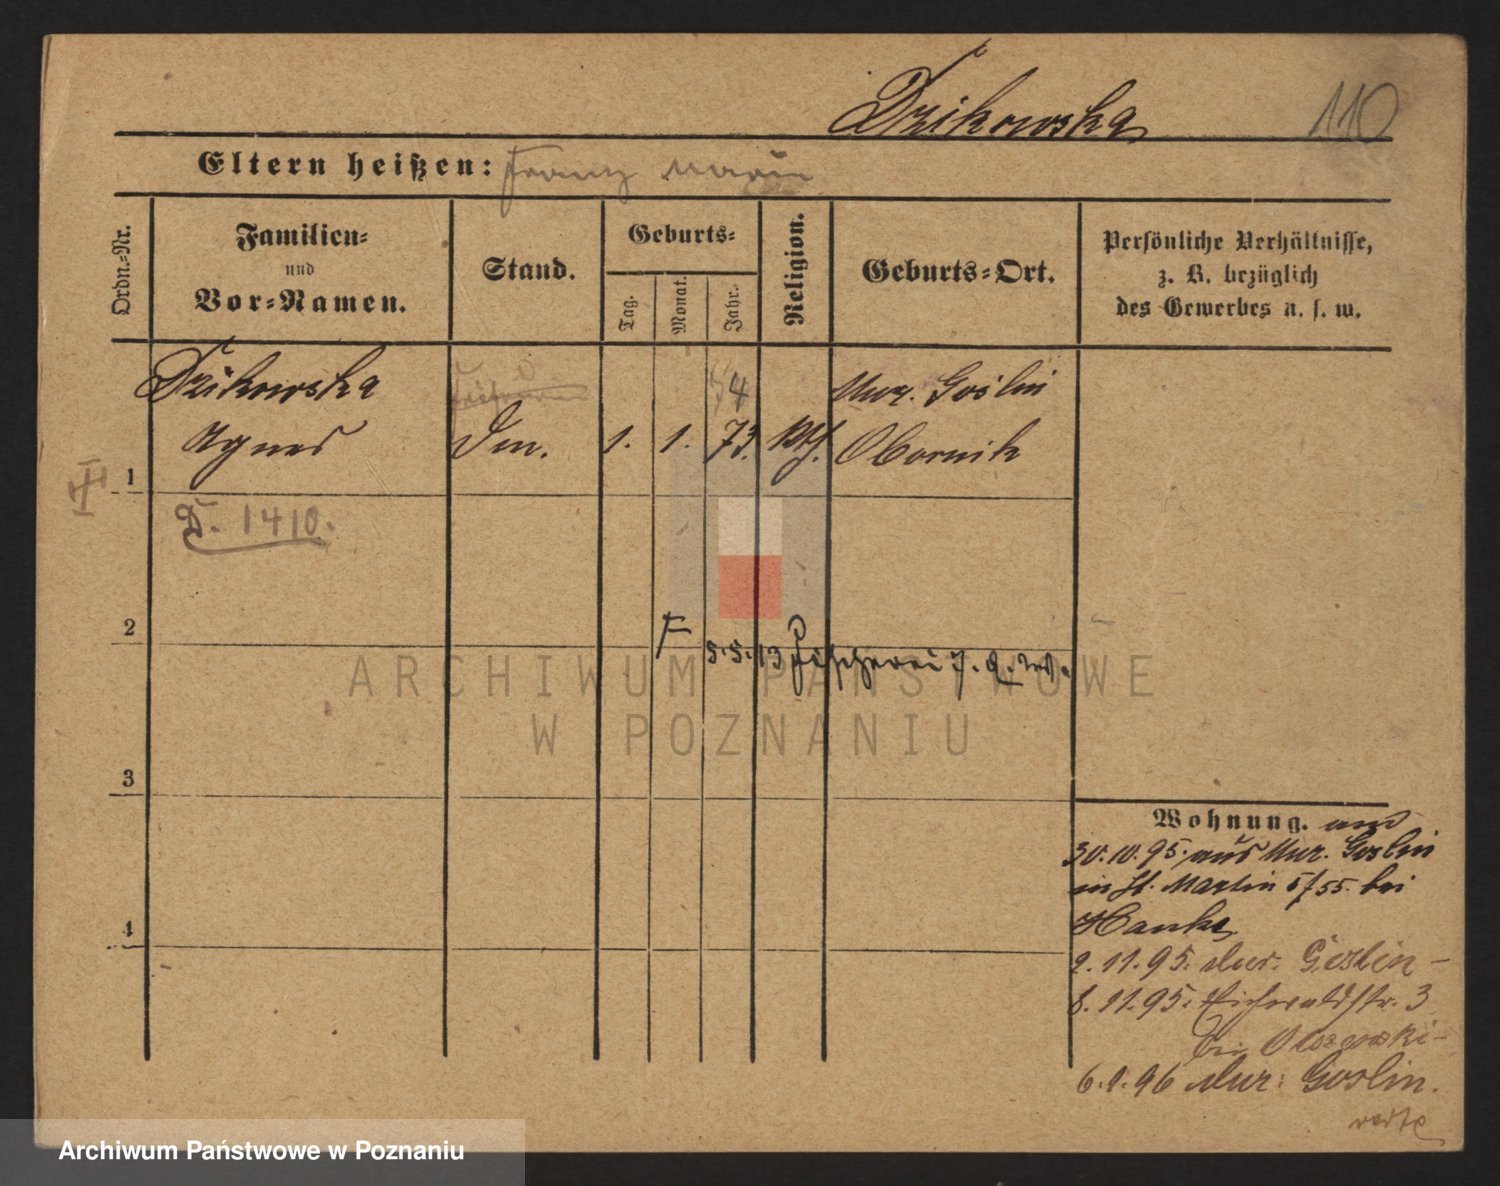 Dzikowska
110
Eltern heißen: Franz Maria
Ordn.-Nr.
Familien-
und
Vor-Namen.
Stand.
Geburts-
Tag.
Monat.
Jahr.
Religion.
Geburts-Ort.
Persönliche Verhältnisse,
z. B. bezüglich
des Gewerbes u. s. w.
Dzikowska
74
Mur. Goslin
Agnes
1. 1. 73.
Obornik
1
D. 1410.
2
5.5.13
3
4
Wohnung.
30.10.95. aus Mur. Goslin
in St. Martin 5/55. bei
Hanke
2.11.95. Mur. Goslin -
8.11.95. Eichwaldstr. 3
bei Olszewski -
6.1.96 Mur: Goslin.
ARCHIWUM PAŃSTWOWE
W POZNANIU
Archiwum Państwowe w Poznaniu